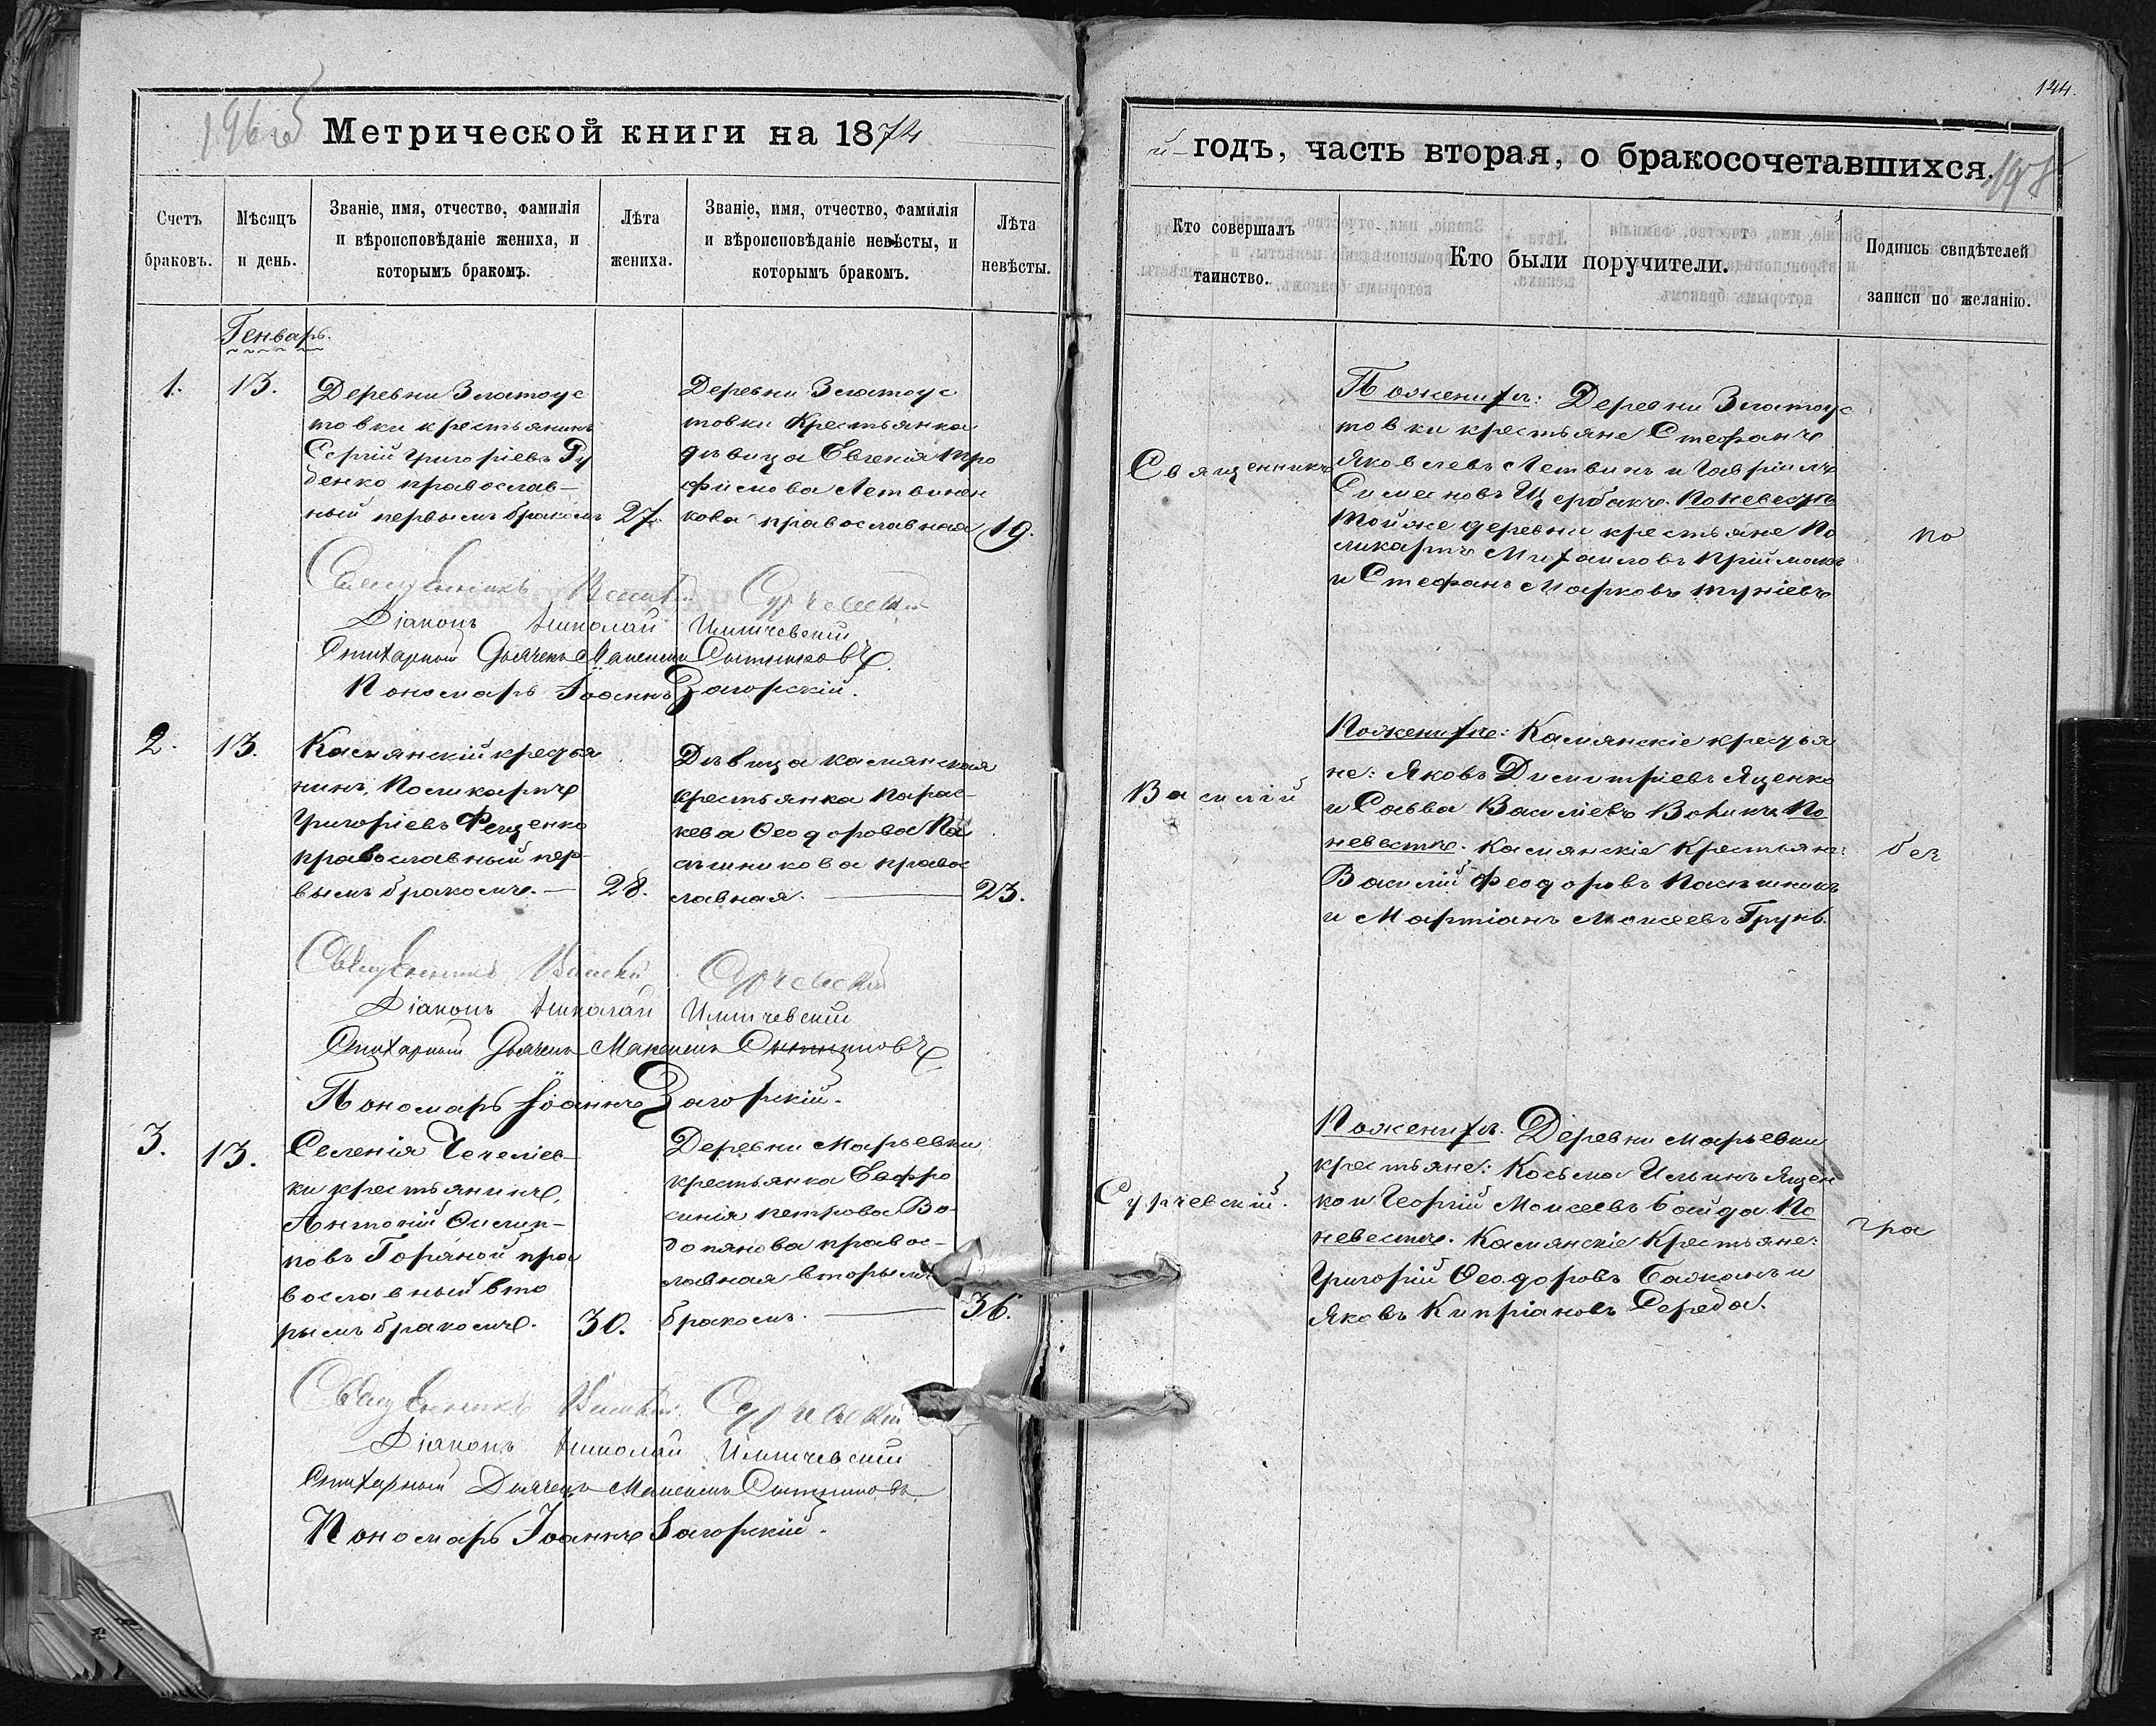 124.
196об
Метрической книги на 1874
й годъ, часть вторая, о бракосочетавшихся.
198
Счетъ браковъ.
Мѣсяцъ и день.
Званіе, имя, отчество, фамилія и вѣроисповѣданіе жениха, и которымъ бракомъ.
Лѣта жениха.
Званіе, имя, отчество, фамилія и вѣроисповѣданіе невѣсты, и которымъ бракомъ.
Лѣта невѣсты.
Кто совершалъ таинство.
Кто были поручители.
Подпись свидѣтелей записи по желанію.
Генварь.
1.
13.
Деревни Златоус
товки крестьянинъ
Сергій Григоріевъ Ру
денко православ–
ный первымъ бракомъ
27.
Деревни Златоус
товки Крестьянка
дѣвица Евгенія Тро
фимова Летвинен
кова православная
19.
Священникъ
По женихѣ: Деревни Златоус
товки крестьяне Стефанъ
Яковлевъ Летвинъ и Гавріилъ
Симеоновъ Щербакъ. По невестѣ
тойже деревни крестьяне По
ликарпъ Михаиловъ Приймакъ
и Стефанъ Марковъ
по
Священникъ Василій Сурчевскій
Діаконъ Николай
Стихарный Дьячекъ Максимъ
Пономарь Іоаннъ Загорскій.
2.
13.
Камянскій крестья
нинъ, Поликарпъ
Григоріевъ Фещенко
православный пер–
вымъ бракомъ. —
28.
Дѣвица камянская
крестьянка Парас–
кева Феодорова Па
сѣшникова правос
лавная. —
23.
Василій
По женихѣ: Камянскіе крестья
не: Яковъ Димитріевъ Яценко
и Савва Василіевъ По
невестѣ. Камянскіе Крестьяне:
Василій Феодоровъ Пасѣшникъ
и Мартіанъ Моисеевъ Грунь.
без
Священникъ Василій Сурчевскій
Діаконъ Николай
Стихарный Дьячекъ Максимъ
Пономарь Іоаннъ Загорскій.
3.
13.
Селенія Чечеліев–
ки крестьянинъ,
Антоній Филип–
повъ Горяной пра
вославный вто
рымъ бракомъ.
30.
Деревни Марьевки
крестьянка Евфро
синія Петрова Во–
допянова правос–
лавная вторымъ
бракомъ. —
36.
Сурчевскій.
По женихѣ. Деревни Марьевки
крестьяне: Косьма Ильинъ Яцен
ко и Георгій Моисеевъ Байда. По
невестѣ. Камянскіе Крестьяне:
Григорій Феодоровъ Бажанъ и
Яковъ Кипріановъ Середа.
гра
Священникъ Василій Сурчевскій
Діаконъ Николай
Стихарный Дьячекъ Максимъ
Пономарь Іоаннъ Загорскій.